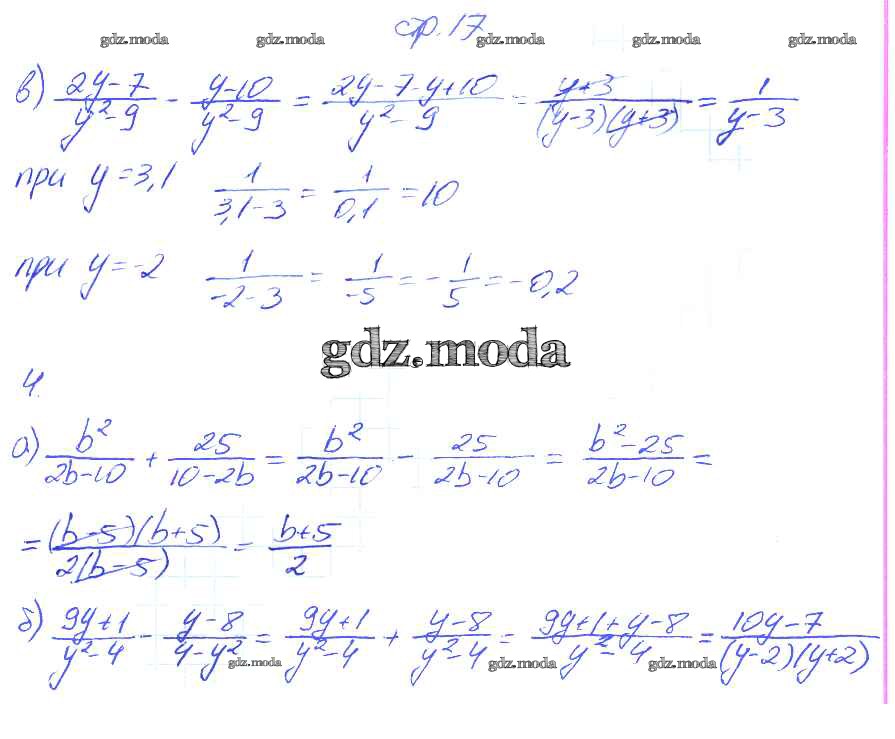 стр. 17
gdz.moda gdz.moda gdz.moda gdz.moda gdz.moda
в) (2y-7)/(y²-9) - (y-10)/(y²-9) = (2y-7-y+10)/(y²-9) = (y+3)/((y-3)(y+3)) = 1/(y-3)
при y=3,1 1/(3,1-3) = 1/0,1 = 10
при y=-2 1/(-2-3) = 1/-5 = -1/5 = -0,2
gdz.moda
4.
а) b²/(2b-10) + 25/(10-2b) = b²/(2b-10) - 25/(2b-10) = (b²-25)/(2b-10) =
= ((b-5)(b+5))/(2(b-5)) = (b+5)/2
б) (9y+1)/(y²-4) - (y-8)/(4-y²) = (9y+1)/(y²-4) + (y-8)/(y²-4) = (9y+1+y-8)/(y²-4) = (10y-7)/((y-2)(y+2))
gdz.moda gdz.moda gdz.moda